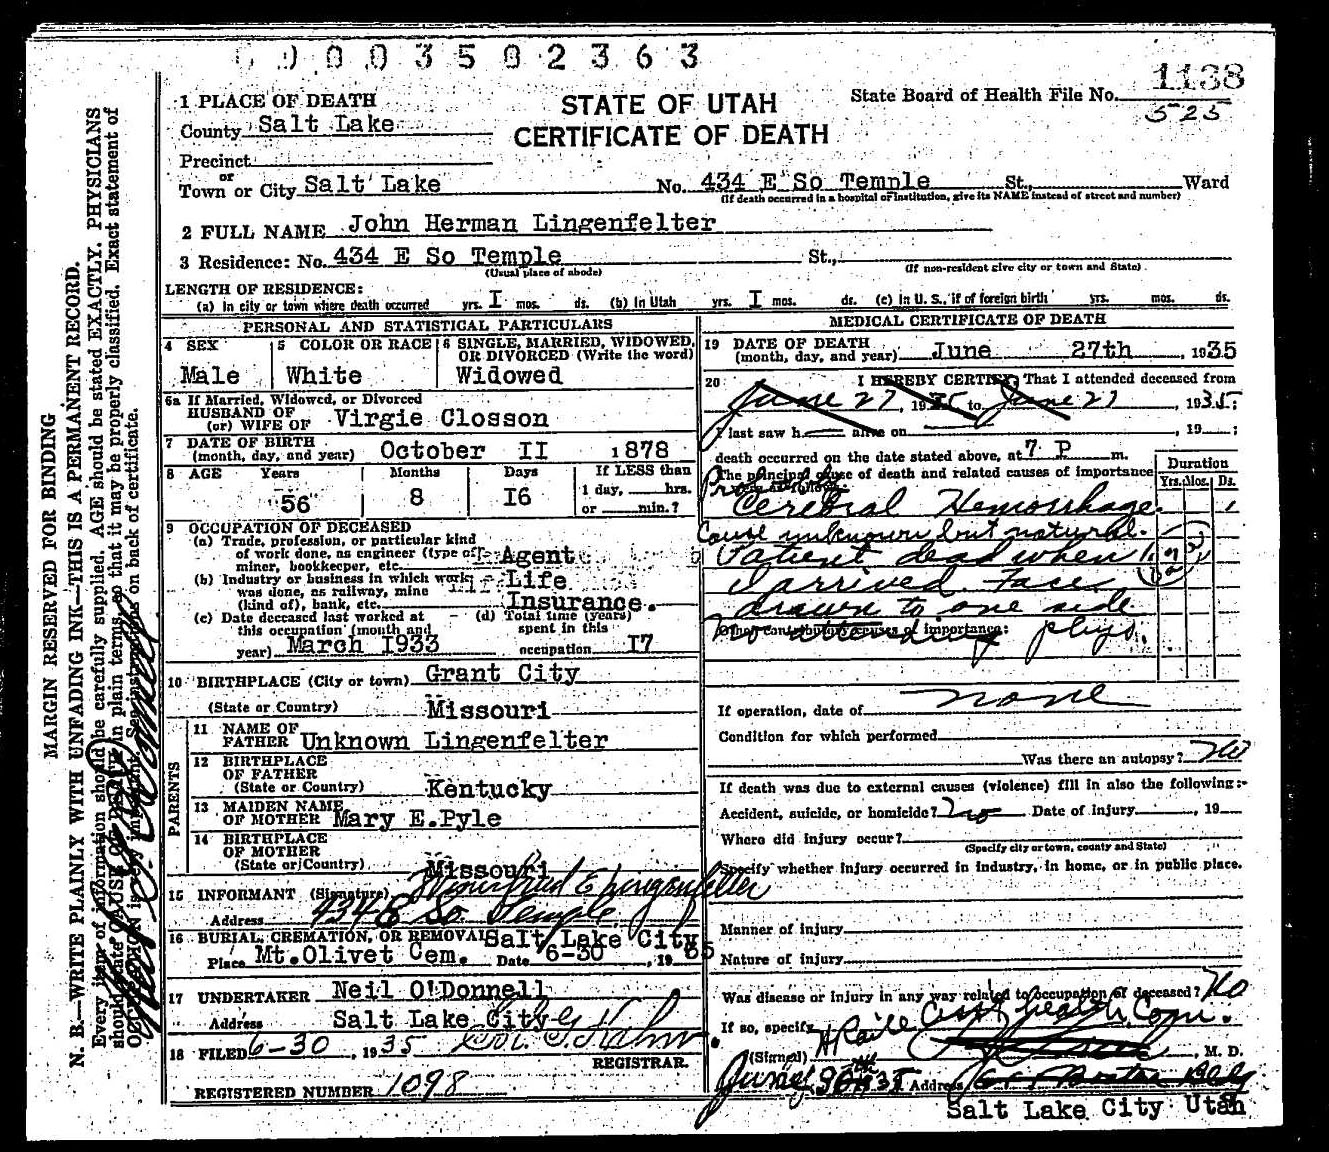 0003502363
1138
525
1 PLACE OF DEATH
STATE OF UTAH
CERTIFICATE OF DEATH
State Board of Health File No.
County Salt Lake
Precinct
or
Town or City Salt Lake No. 434 E So Temple St., Ward
(If death occurred in a hospital or institution, give its NAME instead of street and number)
2 FULL NAME John Herman Lingenfelter
3 Residence: No. 434 E So Temple St.,
(Usual place of abode) (If non-resident give city or town and State)
LENGTH OF RESIDENCE:
(a) In city or town where death occurred yrs. I mos. ds. (b) In Utah yrs. I mos. ds. (c) In U. S., if of foreign birth yrs. mos. ds.
PERSONAL AND STATISTICAL PARTICULARS
4 SEX Male
5 COLOR OR RACE White
6 SINGLE, MARRIED, WIDOWED, OR DIVORCED (Write the word) Widowed
6a If Married, Widowed, or Divorced
HUSBAND OF
(or) WIFE OF Virgie Closson
7 DATE OF BIRTH
(month, day, and year) October II 1878
8 AGE Years 56 Months 8 Days I6
If LESS than
1 day, hrs.
or min.?
9 OCCUPATION OF DECEASED
(a) Trade, profession, or particular kind
of work done, as engineer (type of
miner, bookkeeper, etc. Agent
(b) Industry or business in which work
was done, as railway, mine
(kind of), bank, etc. Life Insurance.
(c) Date deceased last worked at
this occupation (month and
year) March 1933
(d) Total time (years)
spent in this
occupation I7
10 BIRTHPLACE (City or town) Grant City
(State or Country) Missouri
PARENTS
11 NAME OF
FATHER Unknown Lingenfelter
12 BIRTHPLACE
OF FATHER
(State or Country) Kentucky
13 MAIDEN NAME
OF MOTHER Mary E.Pyle
14 BIRTHPLACE
OF MOTHER
(State or Country) Missouri
15 INFORMANT (Signature) Winnifred E Lingenfelter
Address 434 E So Temple
16 BURIAL, CREMATION, OR REMOVAL Salt Lake City
Place Mt.Olivet Cem. Date 6-30, 1935
17 UNDERTAKER Neil O'Donnell
Address Salt Lake City
18 FILED 6-30, 1935
REGISTRAR.
REGISTERED NUMBER 1098
MEDICAL CERTIFICATE OF DEATH
19 DATE OF DEATH
(month, day, and year) June 27th, 1935
20 I HEREBY CERTIFY, That I attended deceased from
June 27, 1935 to June 27, 1935;
I last saw h alive on , 19 ;
death occurred on the date stated above, at 7 P m.
The principal cause of death and related causes of importance
Duration
Yrs. Mos. Ds.
Probable
Cerebral Hemorrhage
Cause unknown but natural.
Patient dead when
I arrived. Face
drawn to one side
Other contributory causes of importance:
no attending phys.
If operation, date of none
Condition for which performed
Was there an autopsy? No
If death was due to external causes (violence) fill in also the following:-
Accident, suicide, or homicide? No Date of Injury , 19
Where did injury occur?
(Specify city or town, county and State)
Specify whether injury occurred in industry, in home, or in public place.
Manner of injury
Nature of injury
Was disease or injury in any way related to occupation of deceased? No
If so, specify
(Signed) , M. D.
Address
Salt Lake City Utah
MARGIN RESERVED FOR BINDING
N. B.—WRITE PLAINLY WITH UNFADING INK—THIS IS A PERMANENT RECORD.
Every item of information should be carefully supplied. AGE should be stated EXACTLY. PHYSICIANS
should state CAUSE OF DEATH in plain terms, so that it may be properly classified. Exact statement of
OCCUPATION is very important. See instructions on back of certificate.